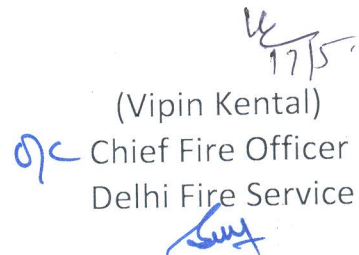 17/5
(Vipin Kental)
O/C Chief Fire Officer
Delhi Fire Service